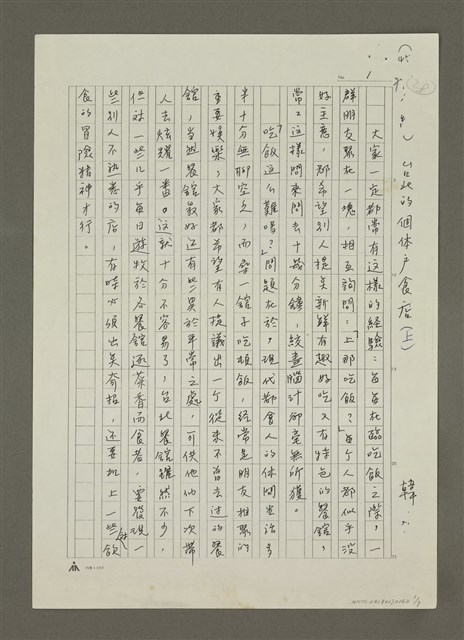 台北的個体户食店(上)
韓
1
大家一定都常有這樣的經驗:每每在臨吃飯之際,一
群朋友聚在一塊,相互詢問:「上那吃飯?」每个人都似乎沒
好主意,都希望別人提吴新鮮有趣好吃又有特色的餐館,
常常這樣問來問去十幾分鐘,絞盡腦汁卻毫無所獲。
吃飯這么難嗎?問題在於,現代都會人的休閒生活多
半十分無聊空乏,而尋一館子吃頓飯,經常是朋友相聚的
重要娛樂,大家都希望有人提議出一个從來不曾去过的餐
館,当然餐館最好还有些異於平常之處,可供他們下次帶
人去炫耀一番。這就十分不容易了,台北餐館雖然不少,
但对一些几乎每日遊牧於各餐館逐茶香而食者,要發現一
些別人不熟悉的店,有時必須出吴奇招,还要加上一些飲
食的冒險精神才行。